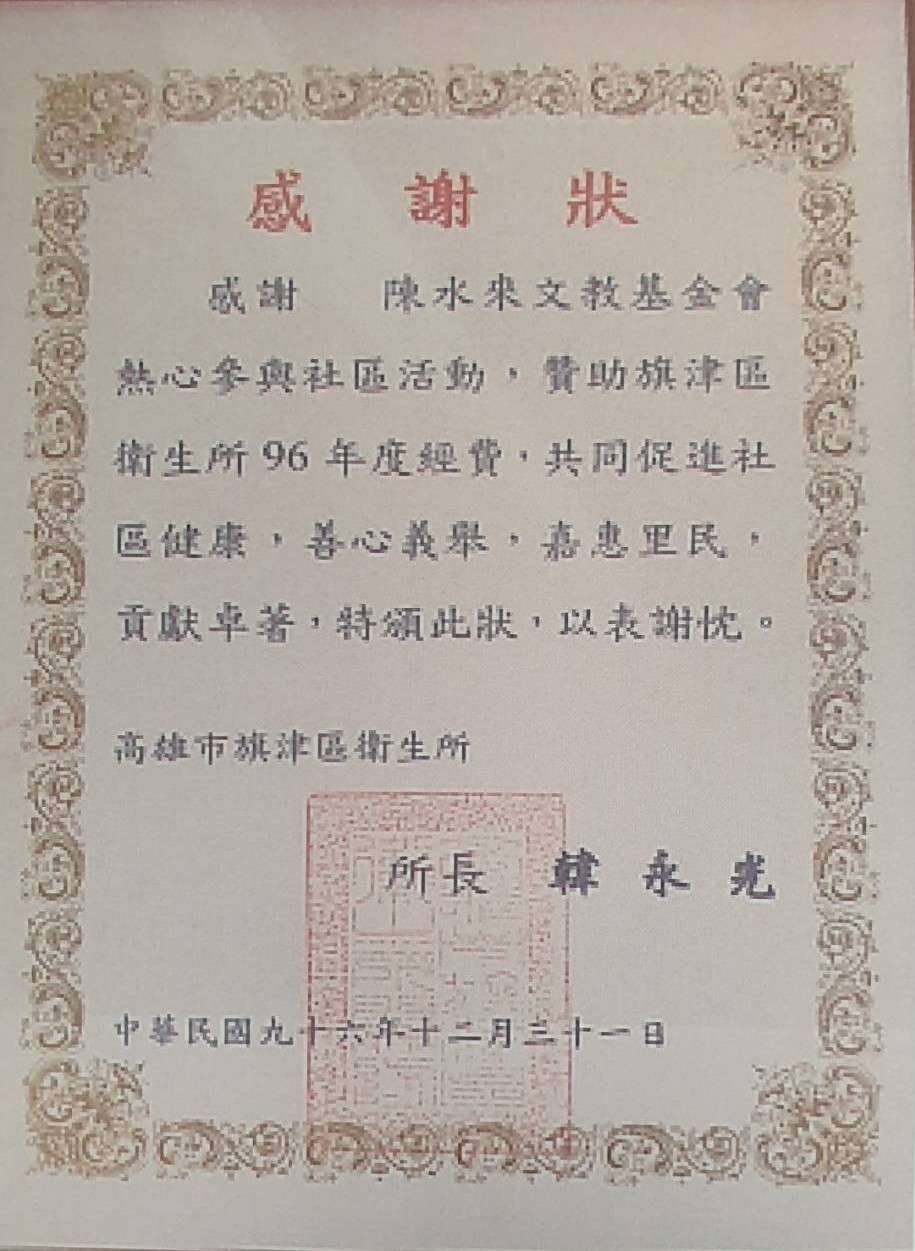 感謝狀
感謝 陳水來文教基金會
熱心參與社區活動，贊助旗津區
衛生所96年度經費，共同促進社
區健康，善心義舉，嘉惠里民，
貢獻卓著，特頒此狀，以表謝忱。
高雄市旗津區衛生所
所長 韓永光
中華民國九十六年十二月三十一日